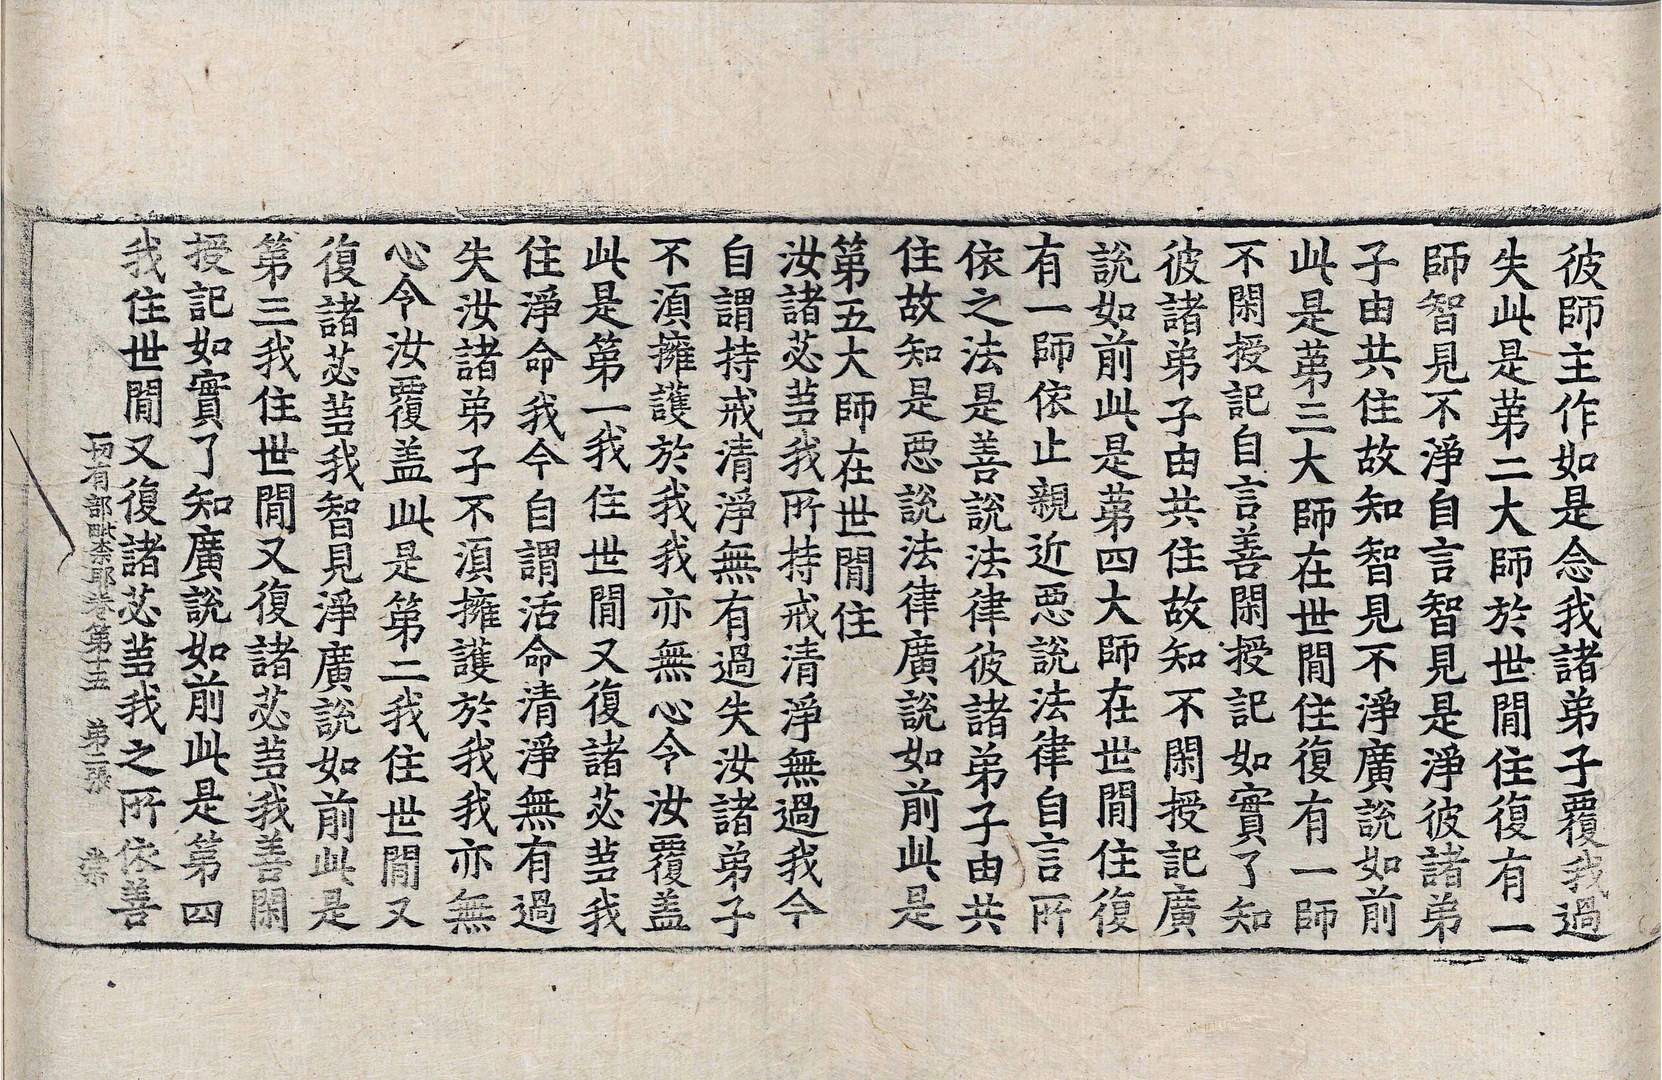 彼師主作如是念我諸弟子覆我過
失此是第二大師於世間住復有一
師智見不淨自言智見是淨彼諸弟
子由共住故知智見不淨廣說如前
此是第三大師在世間住復有一師
不閑授記自言善閑授記如實了知
彼諸弟子由共住故知不閑授記廣
說如前此是第四大師在世間住復
有一師依止親近惡說法律自言所
依之法是善說法律彼諸弟子由共
住故知是惡說法律廣說如前此是
第五大師在世間住
汝諸苾蒭我所持戒清淨無過我今
自謂持戒清淨無有過失汝諸弟子
不須擁護於我我亦無心令汝覆蓋
此是第一我住世間又復諸苾蒭我
住淨命我今自謂活命清淨無有過
失汝諸弟子不須擁護於我我亦無
心令汝覆盖此是第二我住世間又
復諸苾蒭我智見淨廣說如前此是
第三我住世間又復諸苾蒭我善閑
授記如實了知廣說如前此是第四
我住世間又復諸苾蒭我之所依善
一切有部毗奈耶卷第十五 第二張